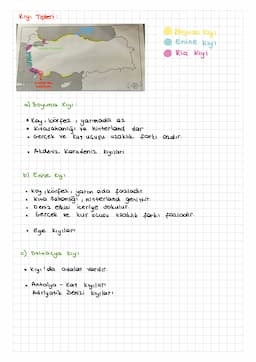 Kıyı Tipleri:
Boyuna Kıyı
Enine Kıyı
Ria Kıyı
a) Boyuna Kıyı
• Koy, körfez, yarımada az
• Kıta sahanlığı ve hinterland dar
• Gerçek ve kuş uçuşu uzaklık farkı azdır.
• Akdeniz Karadeniz kıyıları
b) Enine Kıyı
• Koy, körfez, yarım ada fazladır
• Kıta Sahanlığı, hinterland geniştir.
• Deniz etkisi içeriye sokulur.
• Gerçek ve kuş uçuşu uzaklık farkı fazladır.
• Ege kıyıları
c) Dalmaçya Kıyı
• Kıyı'da adalar vardır.
• Antalya - Kaş kıyıları
Adriyatik Denizi kıyıları